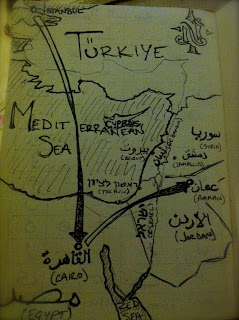 ISTANBUL
TÜRKIYE
N
CYPRUS
MEDITERRANEAN
SEA
سوريا
(SYRIA)
بيروت
دمشق
ראשון לציון
عمان
(AMMAN)
القاهرة
(CAIRO)
الأردن
(JORDAN)
مصر
(EGYPT)
RED
SEA